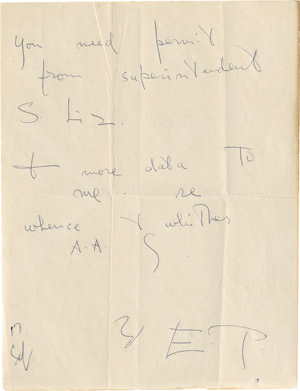 you need permit
from superintendent
S Liz.
+ more data to
me. re
whence & whither
A.A
E.P.